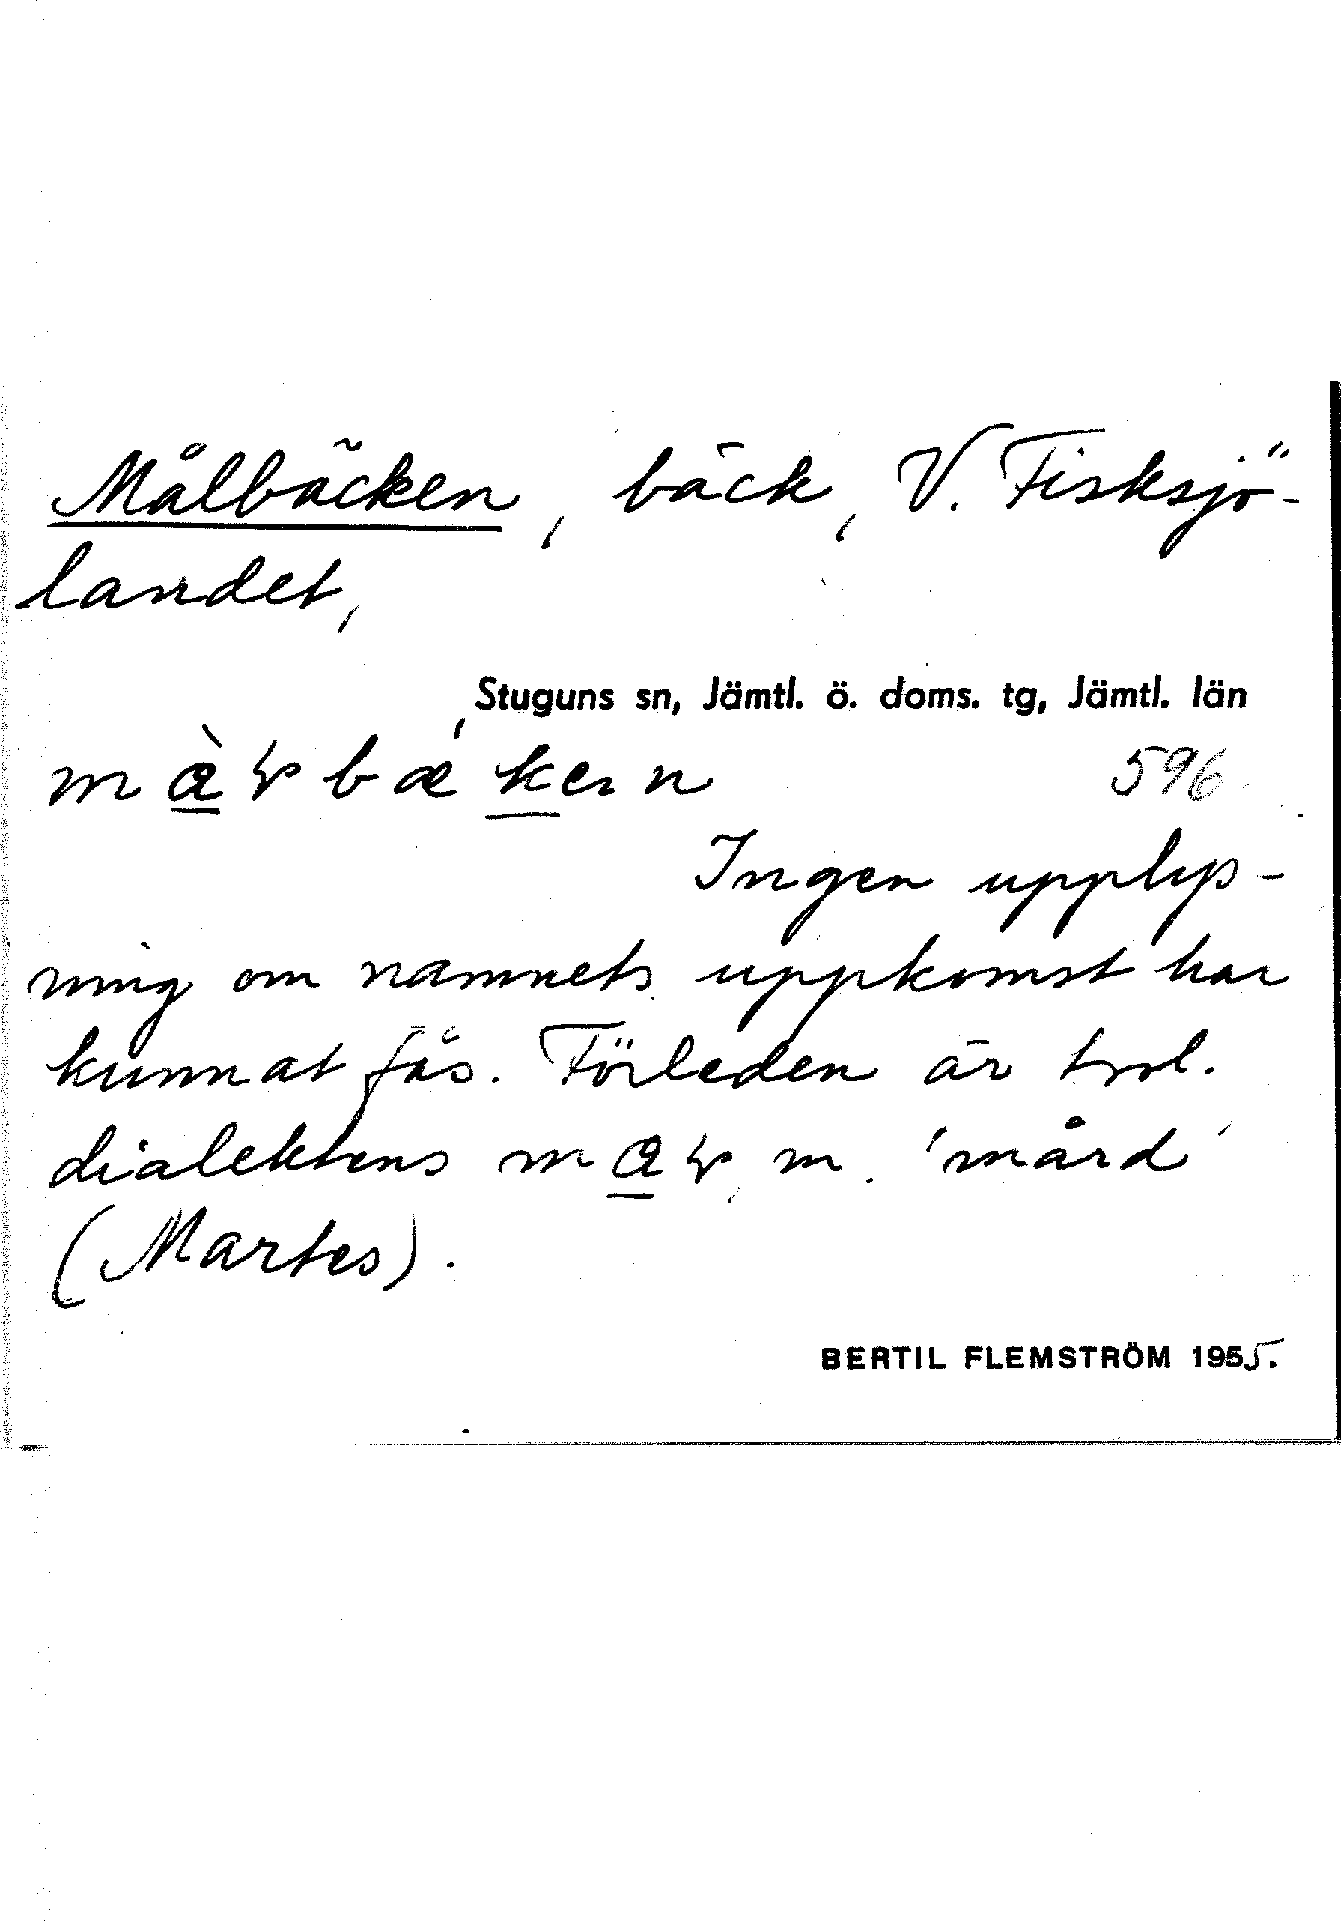 Målbäcken, bäck, V. Fisksjö-
landet,
Stuguns sn, Jämtl. ö. doms. tg, Jämtl. län
596
Ingen upplys-
ning om namnets uppkomst har
kunnat fås. Förleden är trol.
dialektens m. 'mård'
(Martes).
BERTIL FLEMSTRÖM 1955.